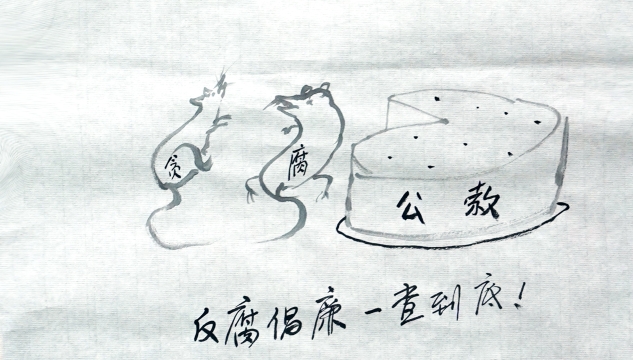 贪
腐
公款
反腐倡廉一查到底!